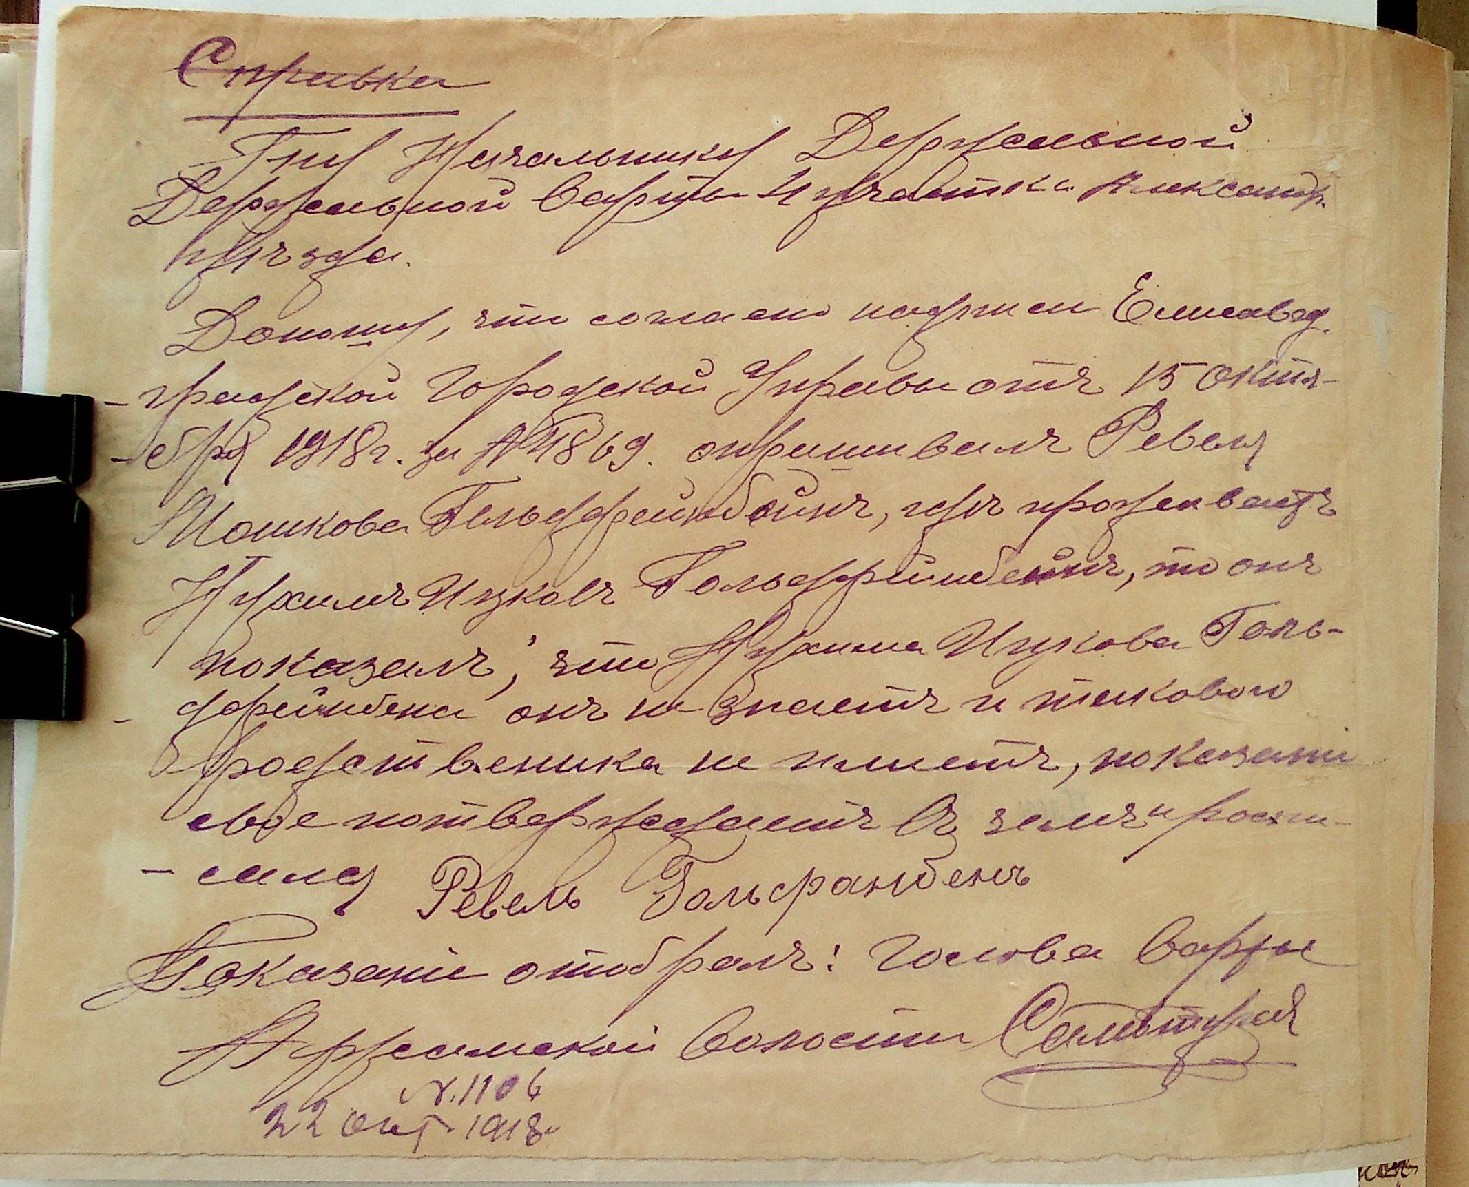 Справка
Гну Начальнику Державной
Державной Варты 4 участка Александр.
уѣзда.
Доношу, что согласно надписи Елисавед
-градской Городской Управы отъ 15 октя-
-бря 1918 г. за № 4869. опрашивалъ Ревеля
Мошкова Гольдфеймбейнъ, гдѣ проживаетъ
Нухимъ Ицковъ Гольдфеймбейнъ, то онъ
показалъ, что Нухима Ицкова Голь-
дфеймбена онъ не знаетъ и такового
Родственика не имеетъ, показание
свое потверждаетъ въ чемъ и роспи-
-сался Ревель Гольфанбенъ
Показание отобралъ: Голова Варты
Аджамской Волости
№ 1106
22 окт 1918